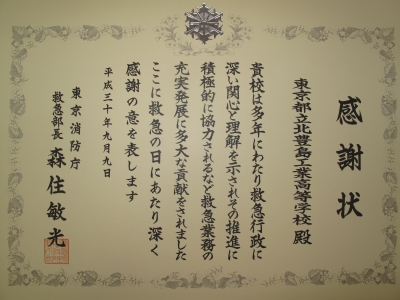 感謝状
東京都立北豊島工業高等学校 殿
貴校は多年にわたり救急行政に
深い関心と理解を示されその推進に
積極的に協力されるなど救急業務の
充実発展に多大な貢献をされました
ここに救急の日にあたり深く
感謝の意を表します
平成三十年九月九日
東京消防庁
救急部長 森住敏光